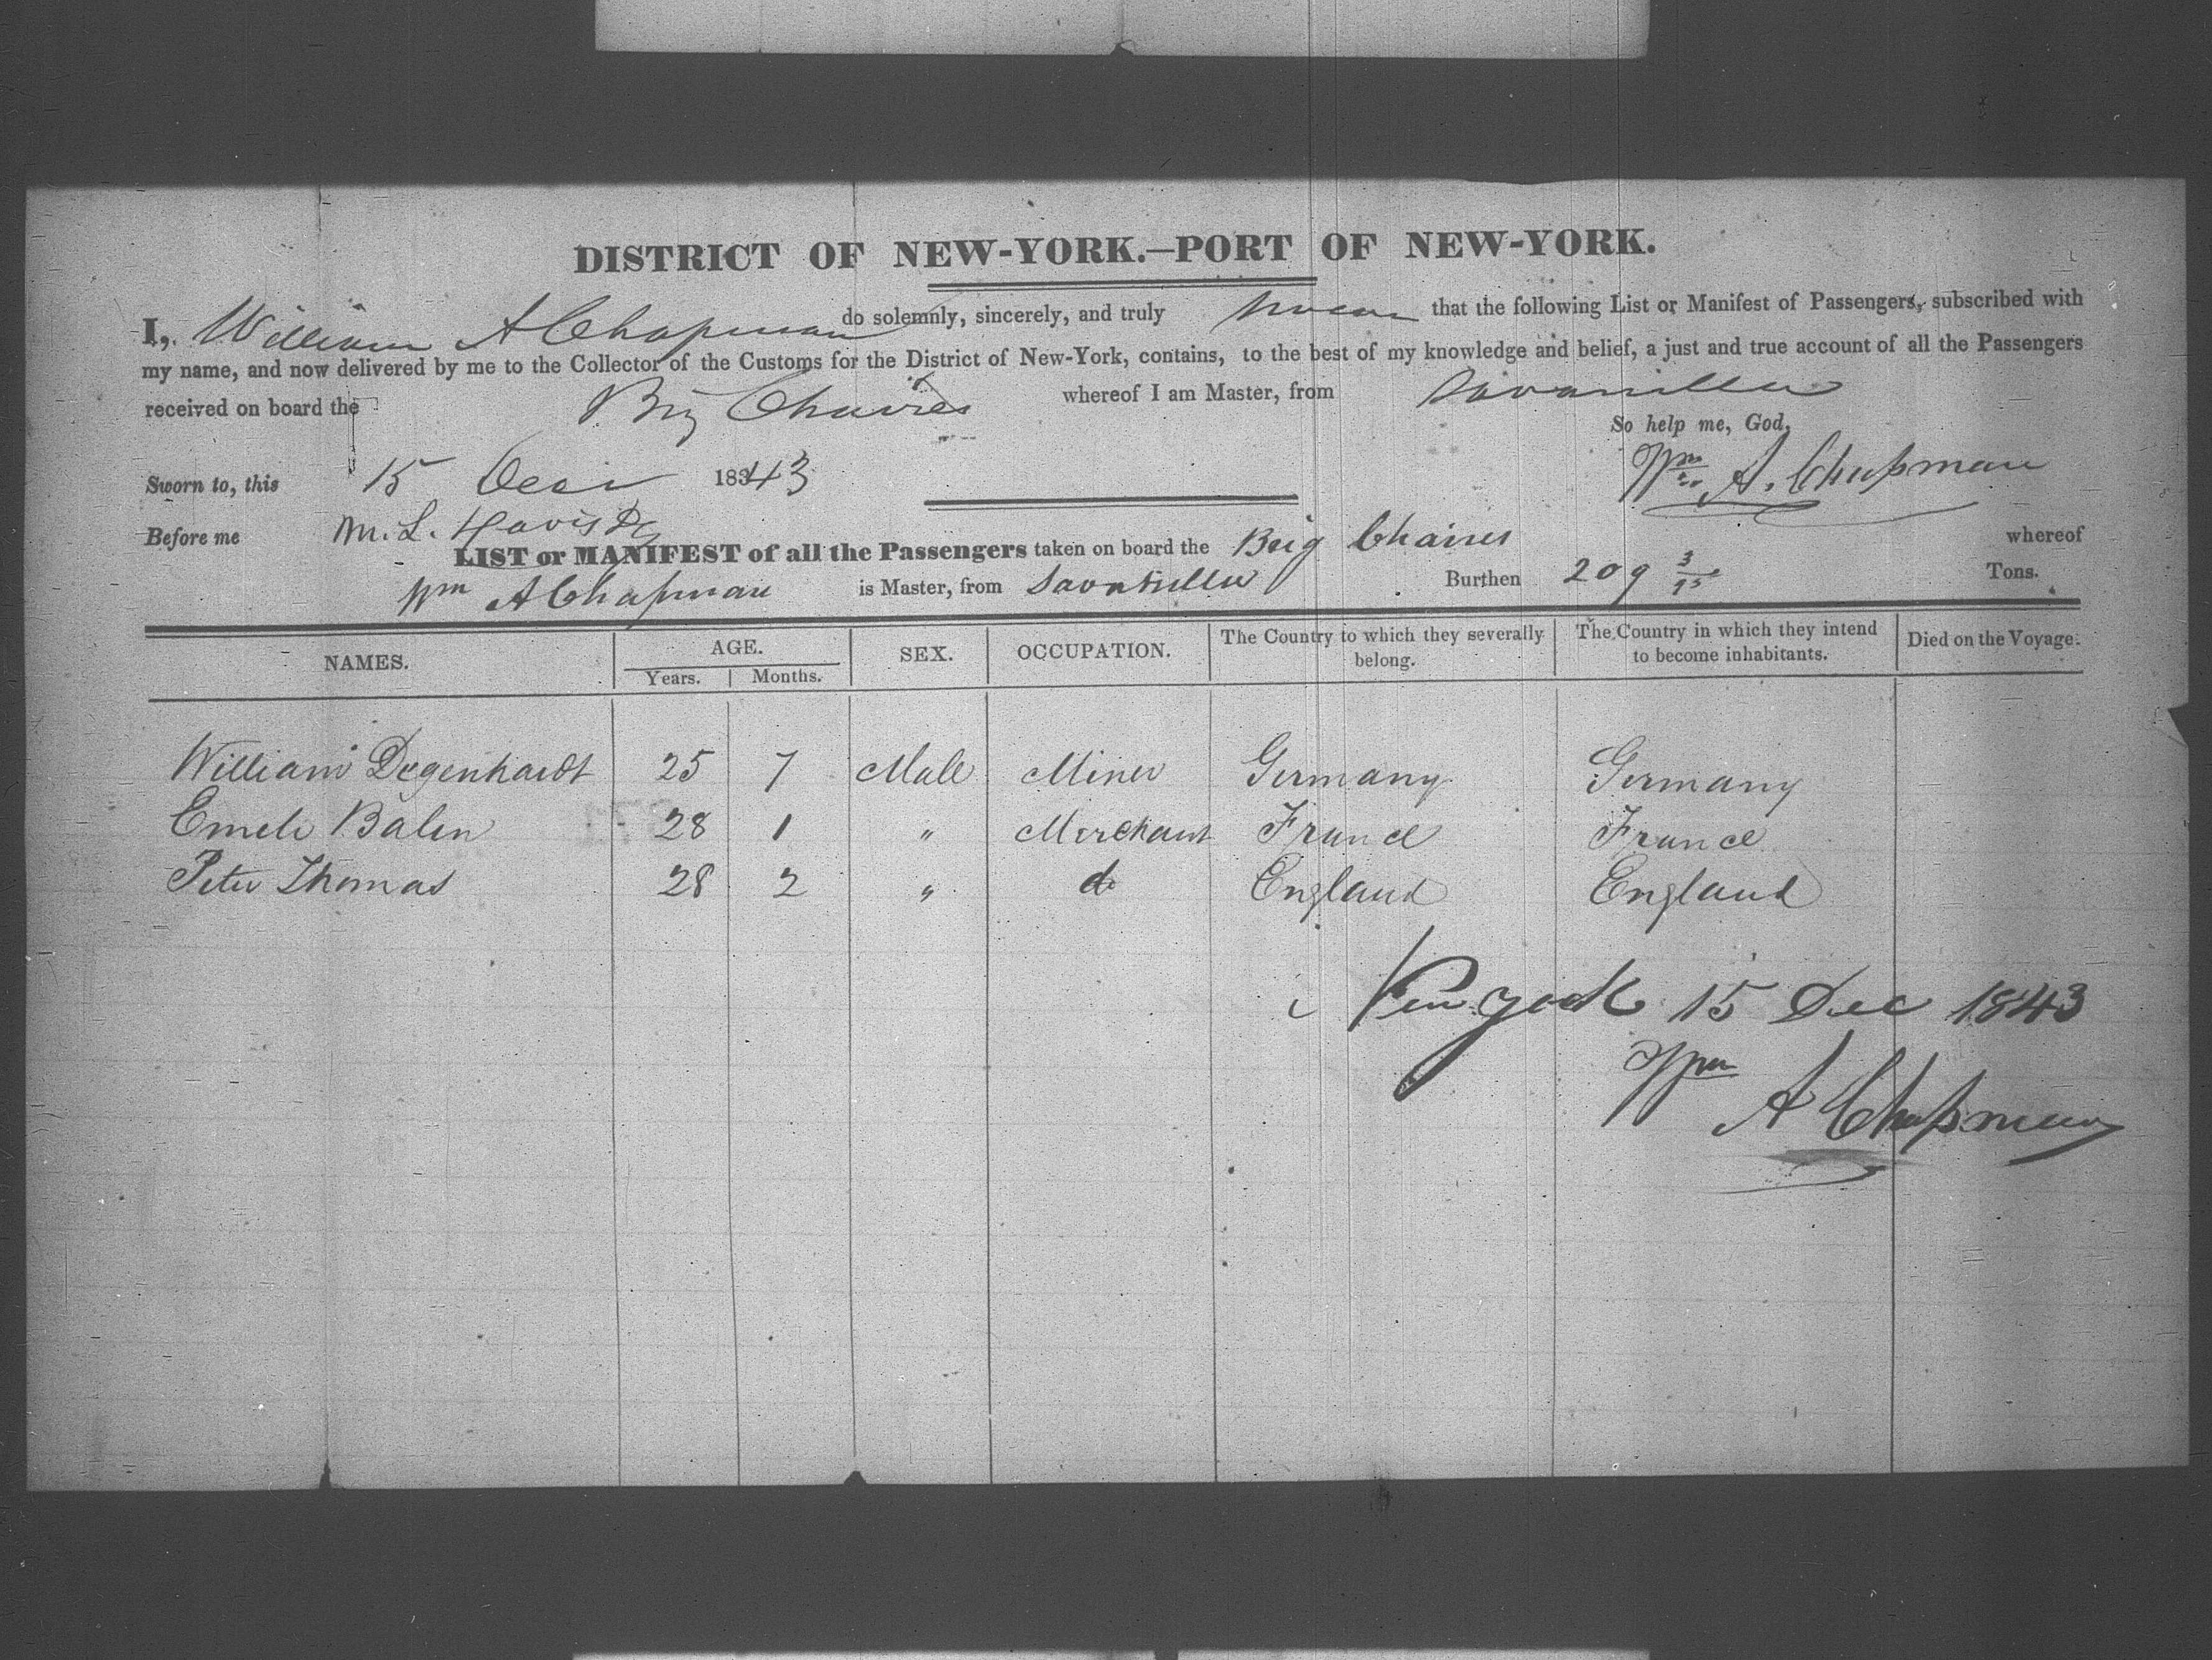 DISTRICT OF NEW-YORK.—PORT OF NEW-YORK.
I, William A Chapman do solemnly, sincerely, and truly swear that the following List or Manifest of Passengers, subscribed with
my name, and now delivered by me to the Collector of the Customs for the District of New-York, contains, to the best of my knowledge and belief, a just and true account of all the Passengers
received on board the Brig Chaires whereof I am Master, from Savanilla
So help me, God.
Sworn to, this 15 Decr 1843 Wm A. Chapman
Before me M. L. Davis
LIST or MANIFEST of all the Passengers taken on board the Brig Chaires whereof
Wm A Chapman is Master, from Savanilla Burthen 209 3/95 Tons.
NAMES. AGE. SEX. OCCUPATION. The Country to which they severally belong. The Country in which they intend to become inhabitants. Died on the Voyage.
Years. Months.
William Degenhardt 25 7 Male Miner Germany Germany
Emele Balen 28 1 " Merchant France France
Peter Thomas 28 2 " do England England
New York 15 Dec 1843
Wm
A Chapman